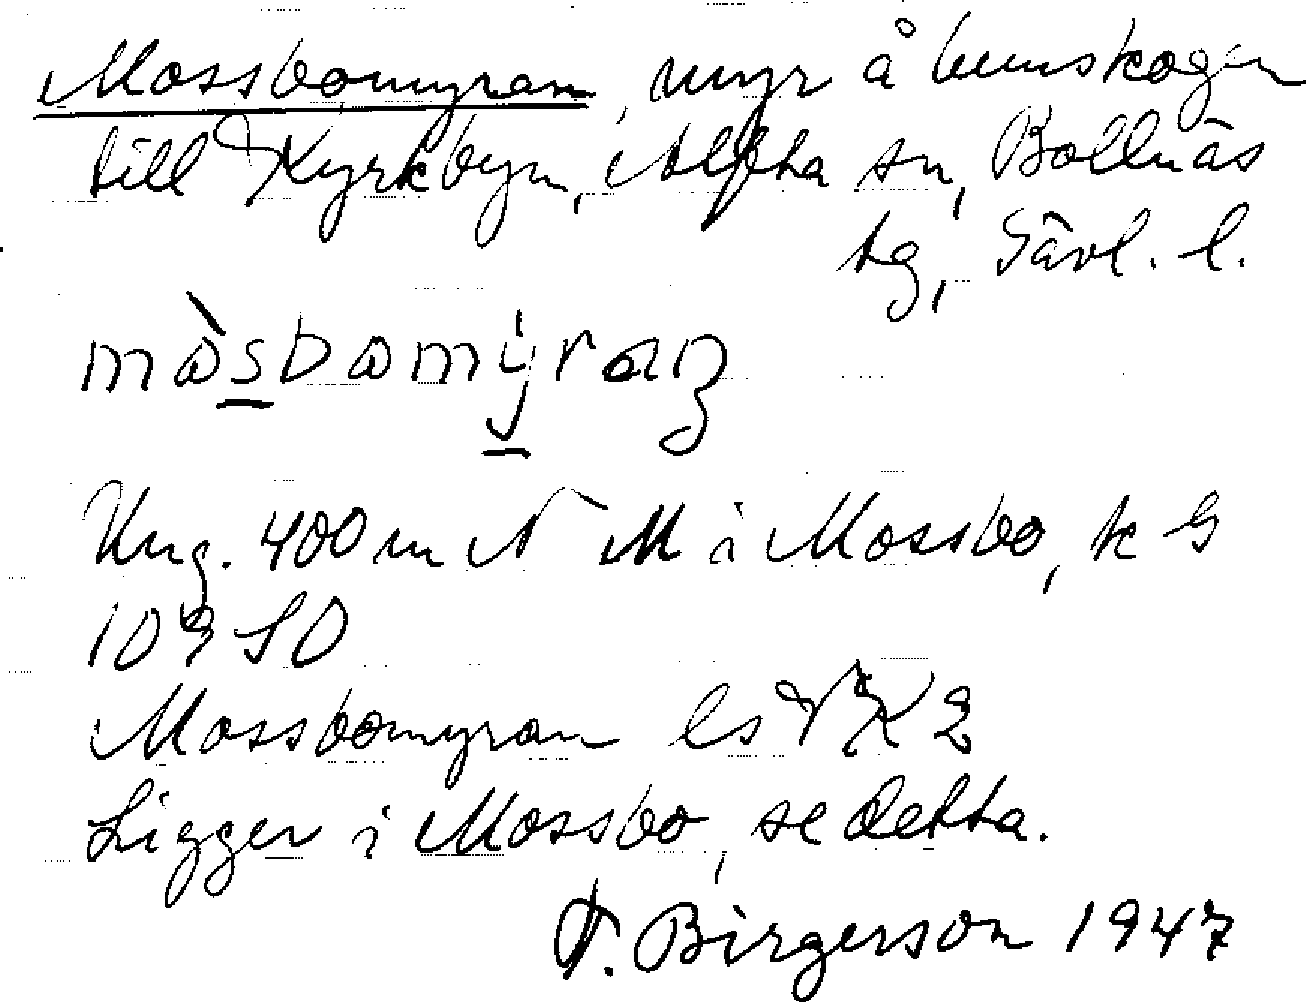 Mossbomyran, myr å hemskogen
till Kyrkbyn, Alfta sn, Bollnäs
tg, Gävl. l.
måsbomyran
Ung. 400 m N M i Mossbo, k G
109 SO
Mossbomyran Es VK 2
Ligger i Mossbo, se detta.
F. Birgerson 1947